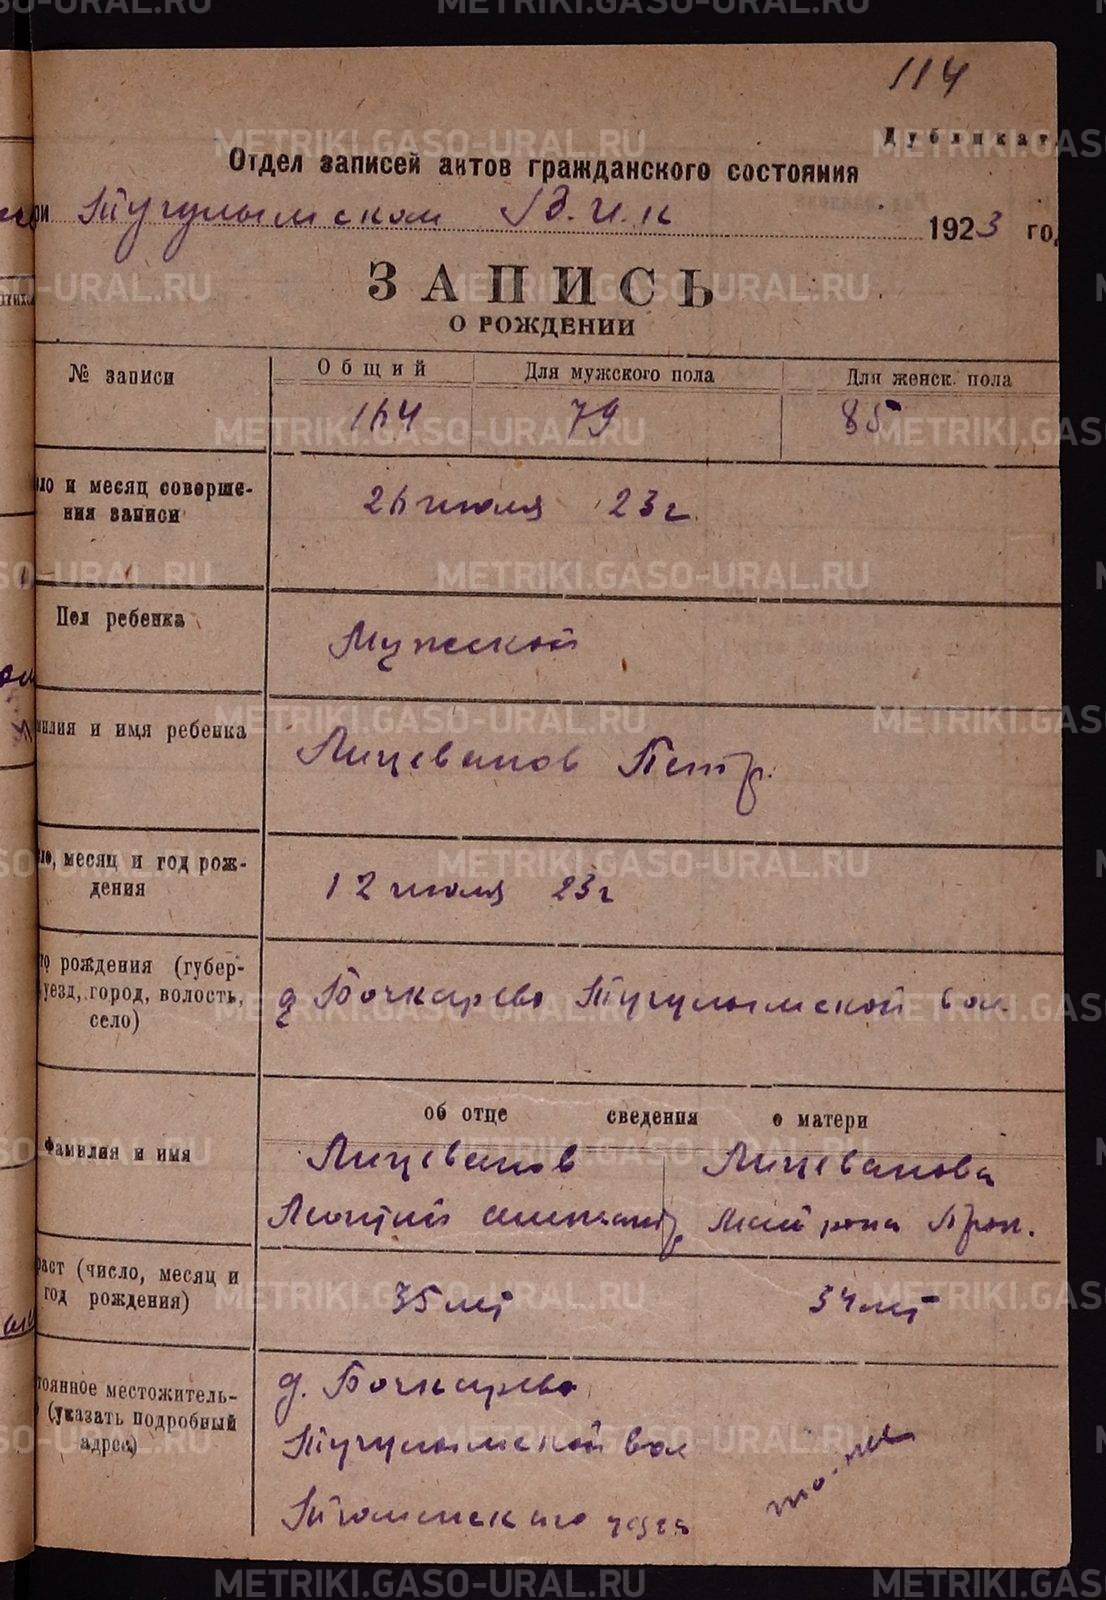 114
Дубликат
Отдел записей актов гражданского состояния
при Тугулымском В.И.К 1923 год
ЗАПИСЬ
О РОЖДЕНИИ
№ записи Общий Для мужского пола Для женск. пола
164 79 85
ло и месяц соверше-
ния записи
26 июля 23 г.
Пол ребенка
Мужской
милия и имя ребенка
Лицеванов Петр.
ло, месяц и год рож-
дения
12 июля 23 г
то рождения (губер-
уезд, город, волость,
село)
д Бочкарево Тугулымской вол.
об отце сведения о матери
Фамилия и имя
Лицеванов Лицеванова
Леонтий Александр Матрона Прок.
раст (число, месяц и
год рождения)
35 лет 34 лет
тоянное местожитель-
(указать подробный
адрес)
д. Бочкарево
Тугулымской вол
Тюменского уезда
то-же
METRIKI.GASO-URAL.RU